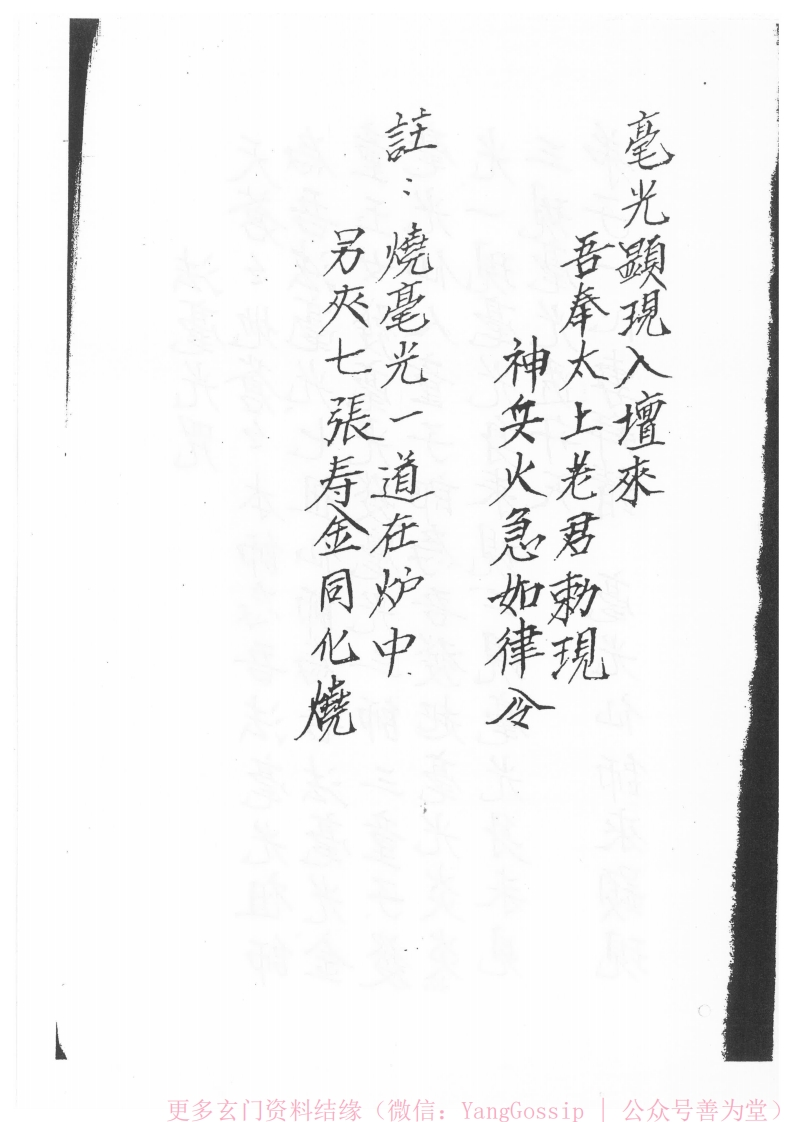 毫光顯現入壇來
吾奉太上老君勅現
神兵火急如律令
註：燒毫光一道在炉中
另夾七張寿金同化燒
更多玄门资料结缘（微信：YangGossip | 公众号善为堂）